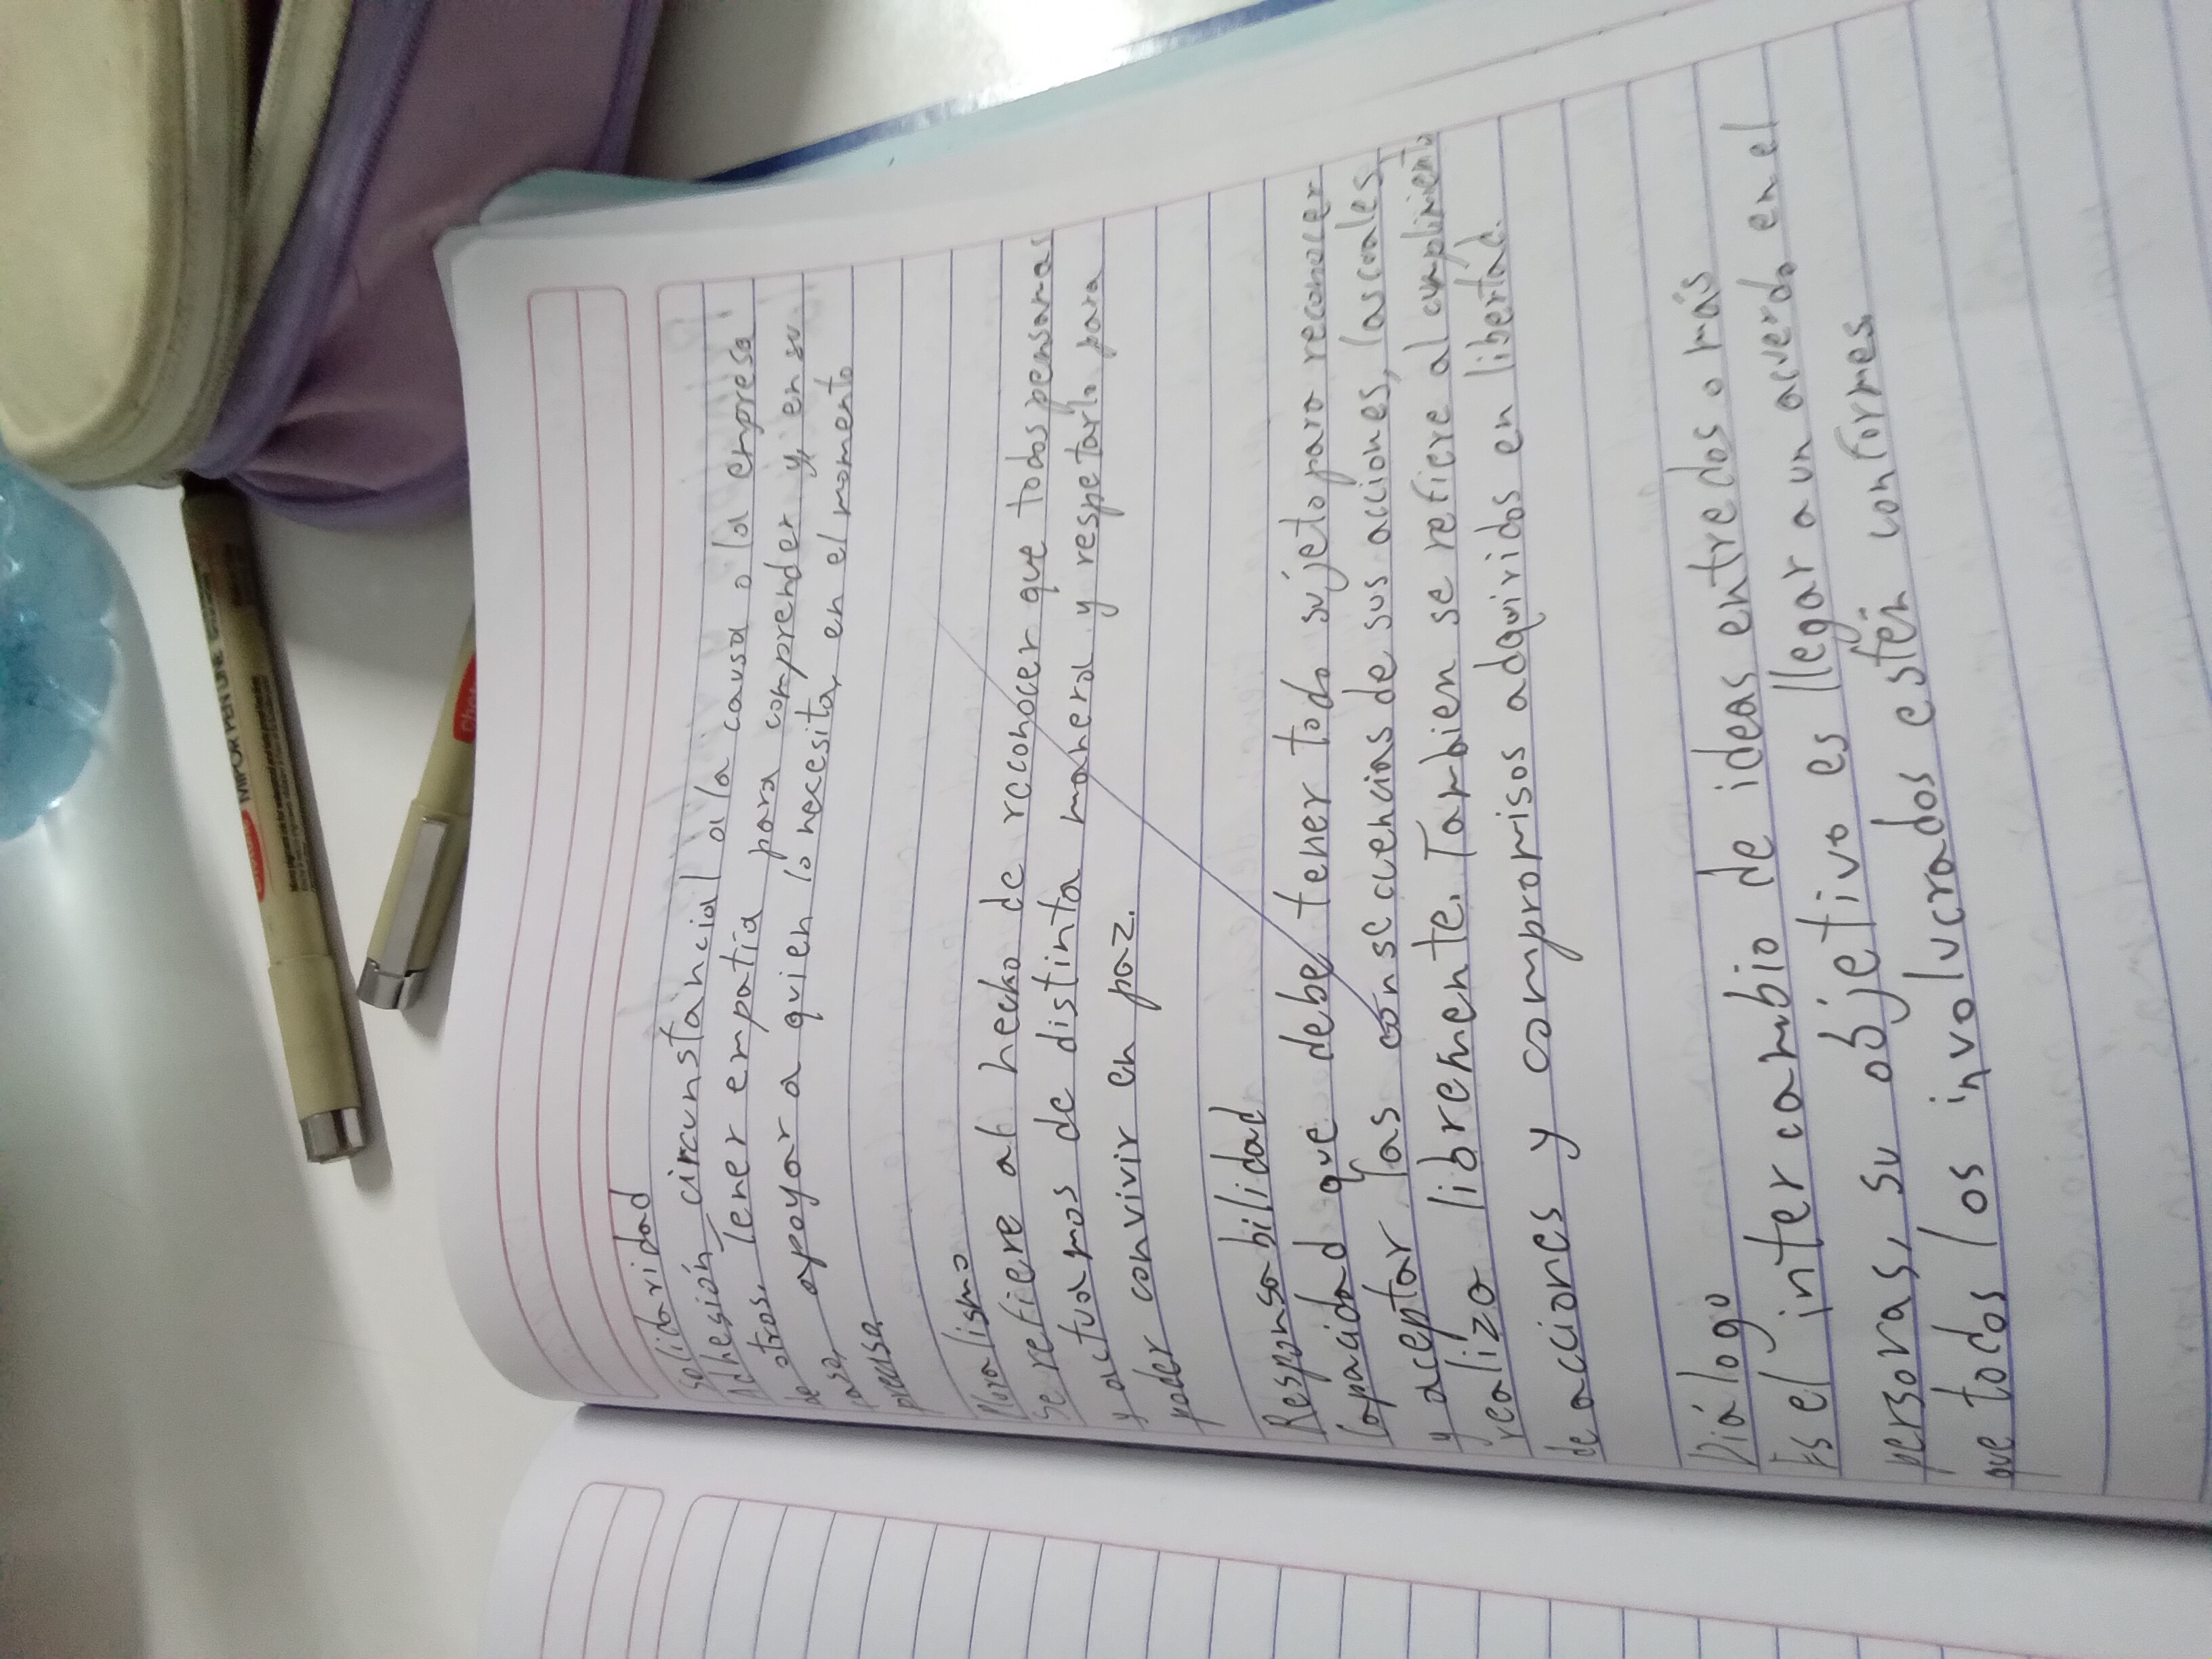 Solidaridad
Adhesión circunstancial a la causa o la empresa
de otros. Tener empatía para comprender y, en su
caso, apoyar a quien lo necesita, en el momento
preciso.
Pluralismo
Se refiere al hecho de reconocer que todos pensamos
y actuamos de distinta manera y respetarlo para
poder convivir en paz.
Responsabilidad
Capacidad que debe tener todo sujeto para reconocer
y aceptar las consecuencias de sus acciones, las cuales
realiza libremente. Tambien se refiere al cumplimiento
de acciones y compromisos adquiridos en libertad.
Diálogo
Es el intercambio de ideas entre dos o más
personas, su objetivo es llegar a un acuerdo en el
que todos los involucrados estén conformes.
MICRON PEN